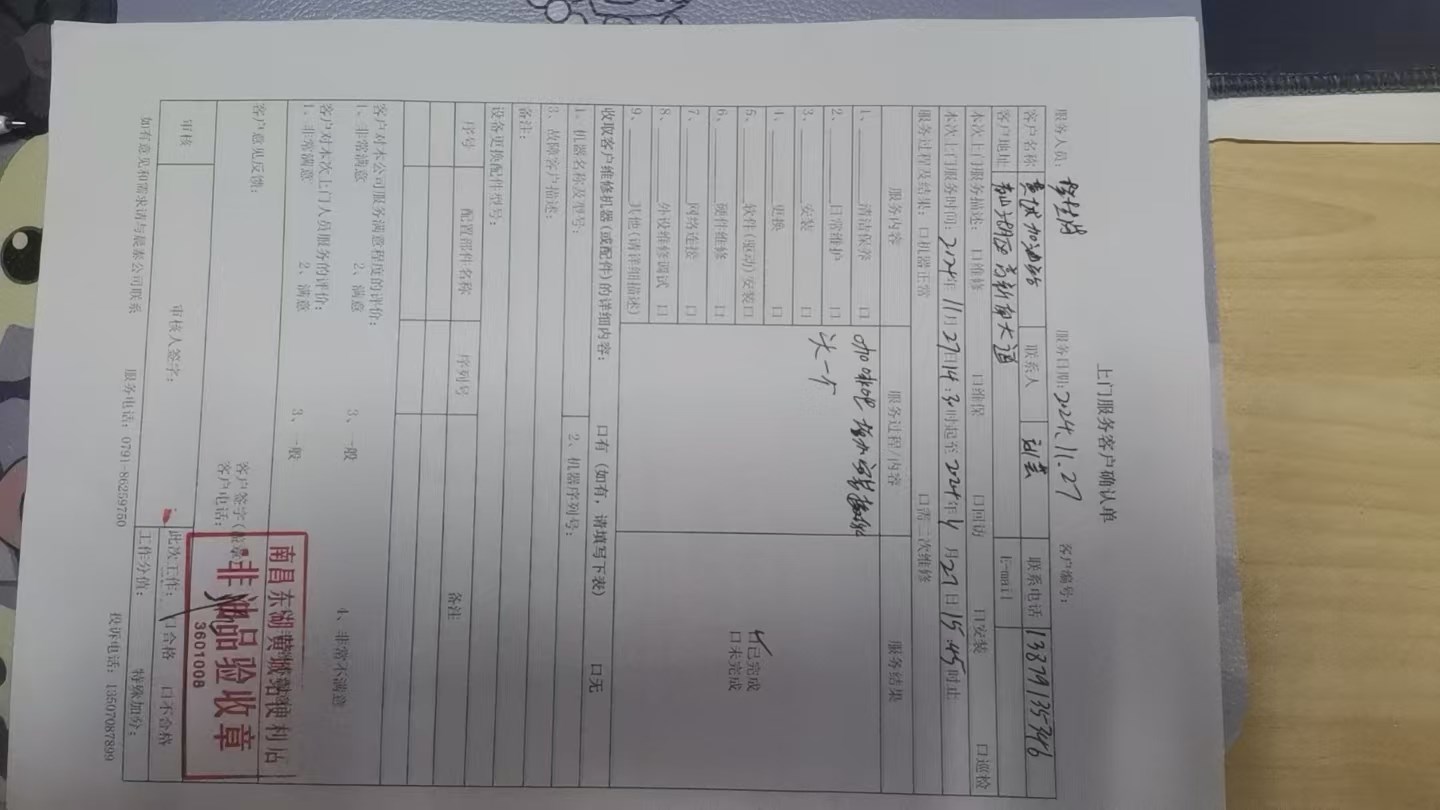 上门服务客户确认单
服务人员： 服务日期：2024.11.27 客户编号：
客户名称 黄城加油站 联系人 联系电话 13879135346
客户地址 高新南大道 E-mail
本次上门服务描述： 口维修 口维保 口回访 口安装 口巡检
本次上门服务时间：2024年11月27日14:30时起至2024年11月27日15:45时止
服务过程及结果：口机器正常 口需二次维修
服务内容 服务过程/内容 服务结果
1、 清洁保养 口 咖啡吧 安装摄像
2、 日常维护 口 头一个
3、 安装 口
4、 更换 口
5、 软件(驱动)安装口 口已完成
6、 硬件维修 口 口未完成
7、 网络连接 口
8、 外设维修调试 口
9、 其他(请详细描述)
收取客户维修机器(或配件)的详细内容： 口有（如有，请填写下表） 口无
1、机器名称及型号： 2、机器序列号：
3、故障客户描述：
备注：
设备更换配件型号：
序号 配置部件名称 序列号 备注
客户对本公司服务满意程度的评价：
1、非常满意 2、满意 3、一般 4、非常不满意
客户对本次上门人员服务的评价：
1、非常满意 2、满意 3、一般
客户意见反馈：
客户签字(盖章
客户电话：
南昌东湖黄城站便利店
非油品验收章
3601008
审核 审核人签字： 此次工作： 口合格 口不合格
工作分值： 特殊加分：
如有意见和需求请与晨泰公司联系 服务电话：0791-86259750 投诉电话：13507087899